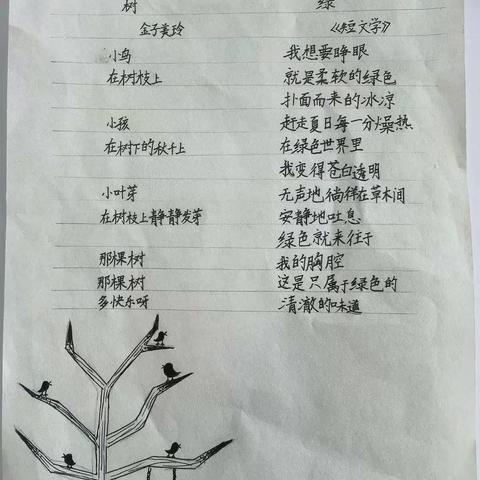 树
金子美玲
小鸟
在树枝上
小孩
在树下的秋千上
小叶芽
在树枝上静静发芽
那棵树
那棵树
多快乐呀
绿
《短文学》
我想要睁眼
就是柔软的绿色
扑面而来的冰凉
赶走夏日每一分燥热
在绿色世界里
我变得苍白透明
无声地徜徉在草木间
安静地吐息
绿色就来往于
我的胸腔
这是只属于绿色的
清澈的味道